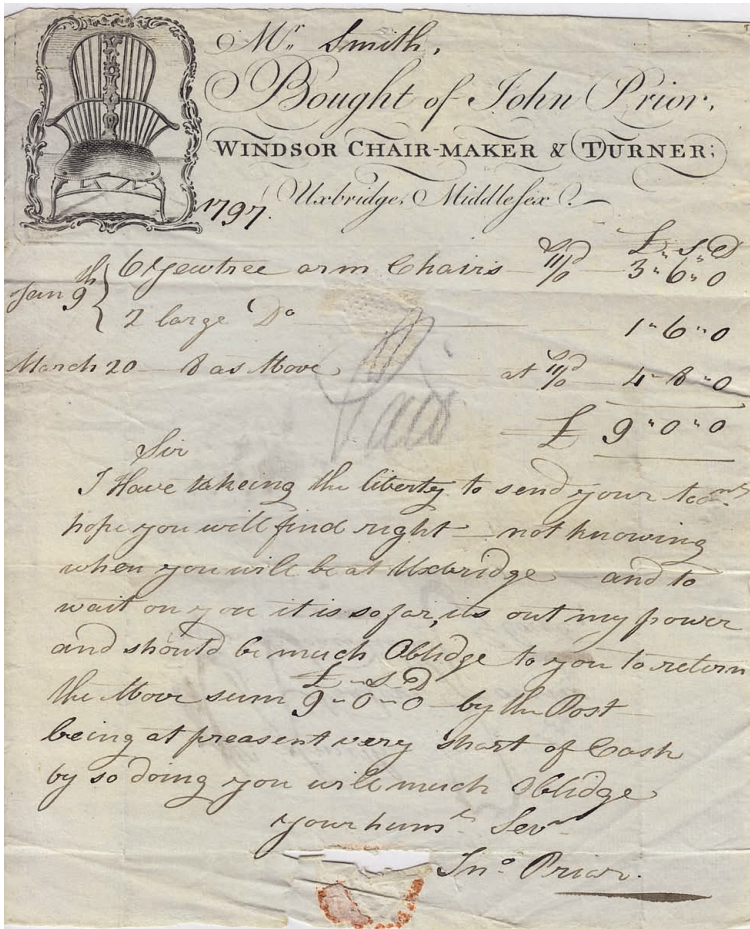 Mr. Smith,
Bought of John Prior,
WINDSOR CHAIR-MAKER & TURNER;
Uxbridge, Middlesex
1797
S D £ S D
Jan 9th 6 Yewtree arm Chairs 11/0 3 " 6 " 0
2 large Do 1 " 6 " 0
March 20 8 as Above at S D 11/0 4 - 8 - 0
Paid
£ 9 " 0 " 0
Sir
I Have takeing the liberty to send your Accmt
hope you will find right not knowing
when you will be at Uxbridge and to
wait on you it is so far, its out my power
and should be much Oblidge to you to return
the Above sum £ - S - D 9 - 0 - 0 by the Post
being at preasent very short of Cash
by so doing you will much Oblidge
your humle Servt
Jno Prior.